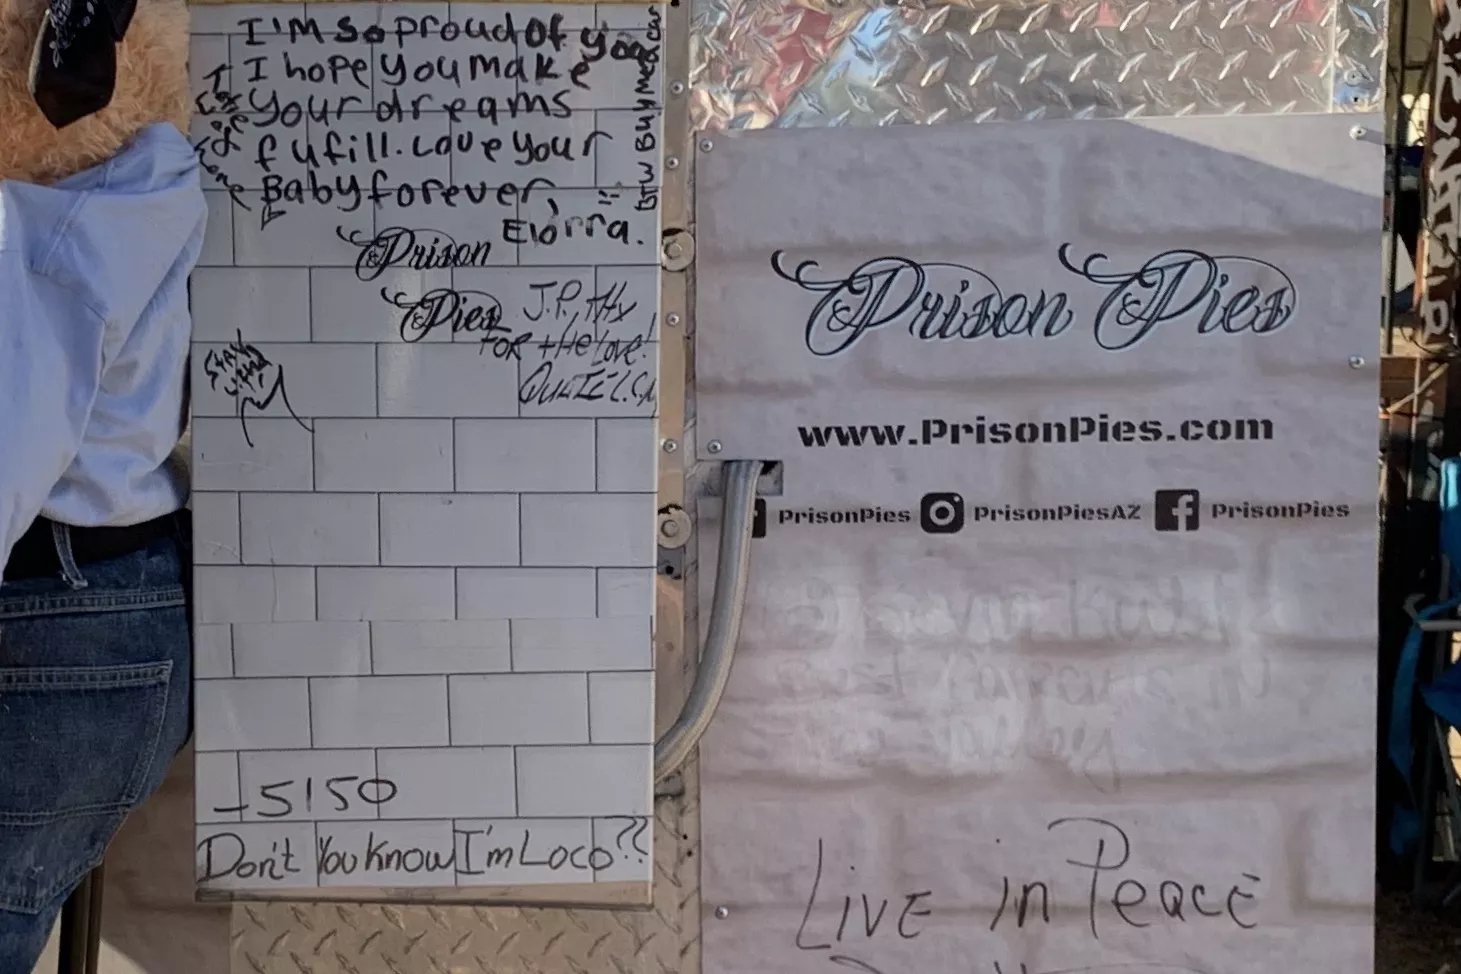 I'm so proud of you
I hope you make
your dreams
fufill. Love your
Baby forever,
Elorra.
BTW BUY ME a car
Prison
Pies
J.P., thx
FOR tHE Love!
-5150
Don't You Know I'm Loco??
Prison Pies
www.PrisonPies.com
PrisonPies
PrisonPiesAZ
PrisonPies
Live in Peace